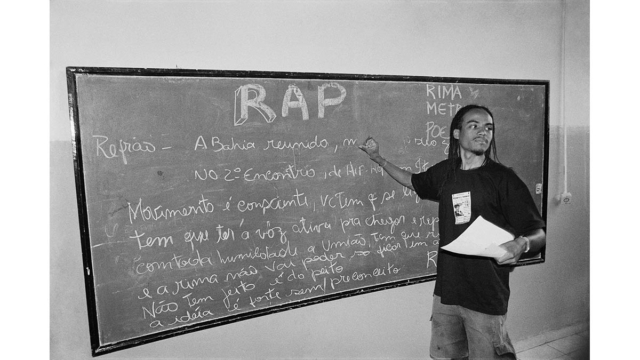 RAP
RIMA
MET
POE
Refrão - A Bahia reunida, m
No 2º Encontro, de Hip
Movimento é consciente, vc tem q se li
tem que ter a vóz ativa pra chegar e rep
com toda humildade a União, tem que
e a rima não vai poder só ficar tem
Não tem jeito é do peito
a idéia é forte sem preconceito
R